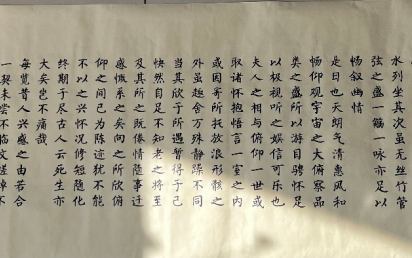 水列坐其次虽无丝竹管
弦之盛一觞一咏亦足以
畅叙幽情
是日也天朗气清惠风和
畅仰观宇宙之大俯察品
类之盛所以游目骋怀足
以极视听之娱信可乐也
夫人之相与俯仰一世或
取诸怀抱悟言一室之内
或因寄所托放浪形骸之
外虽趣舍万殊静躁不同
当其欣于所遇暂得于己
快然自足不知老之将至
及其所之既倦情随事迁
感慨系之矣向之所欣俯
仰之间已为陈迹犹不能
不以之兴怀况修短随化
终期于尽古人云死生亦
大矣岂不痛哉
每览昔人兴感之由若合
一契未尝不临文嗟悼不